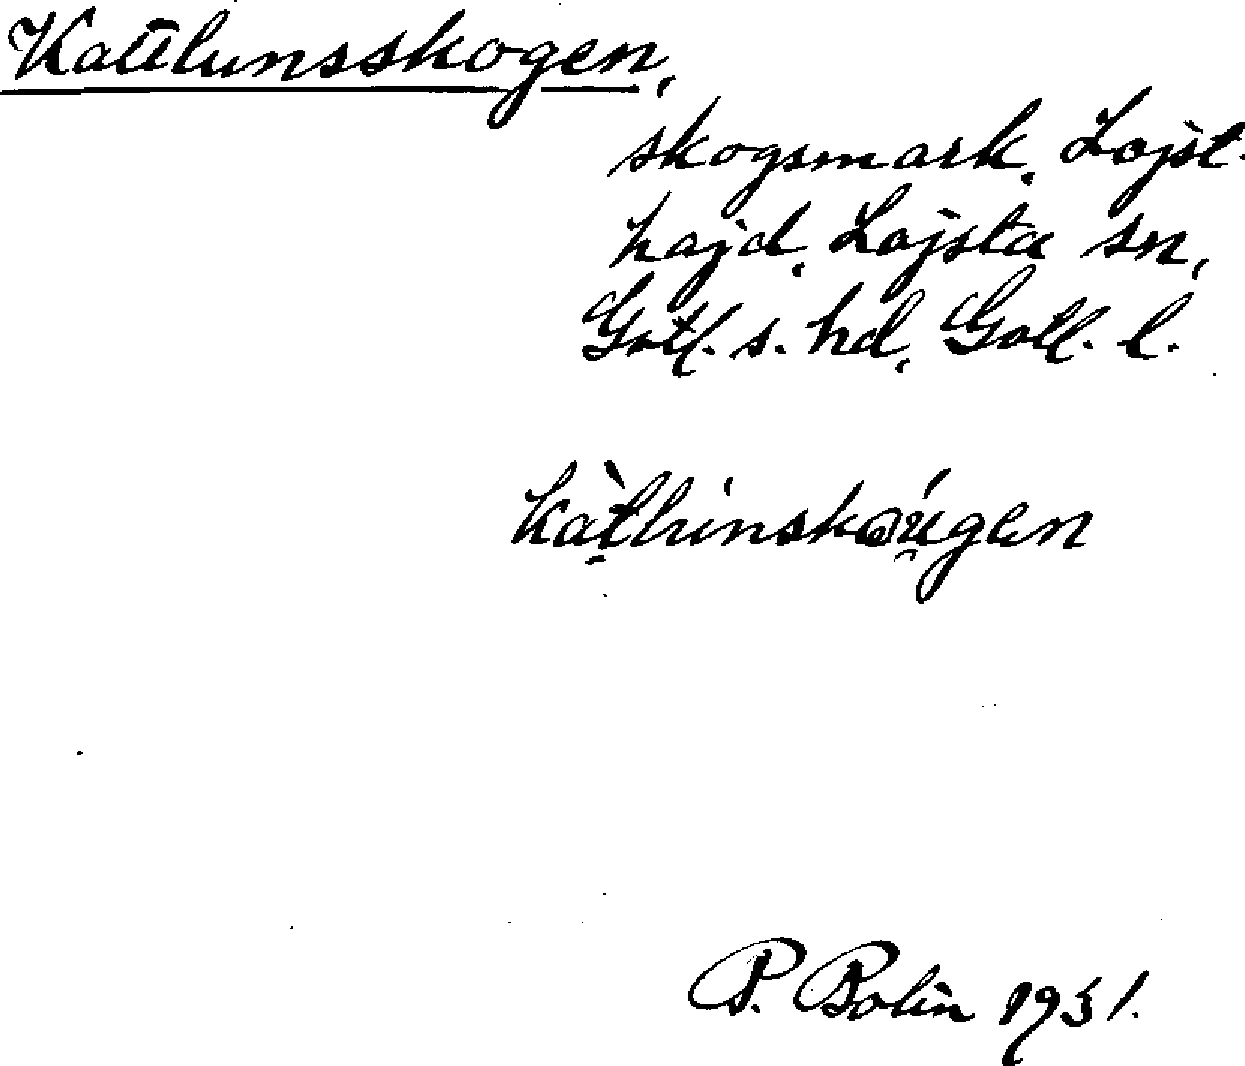 Kattlunsskogen,
skogsmark, Lojst-
hajd, Lojsta sn,
Gotl. s. hd, Gotl. l.
P. Bolin 1931.